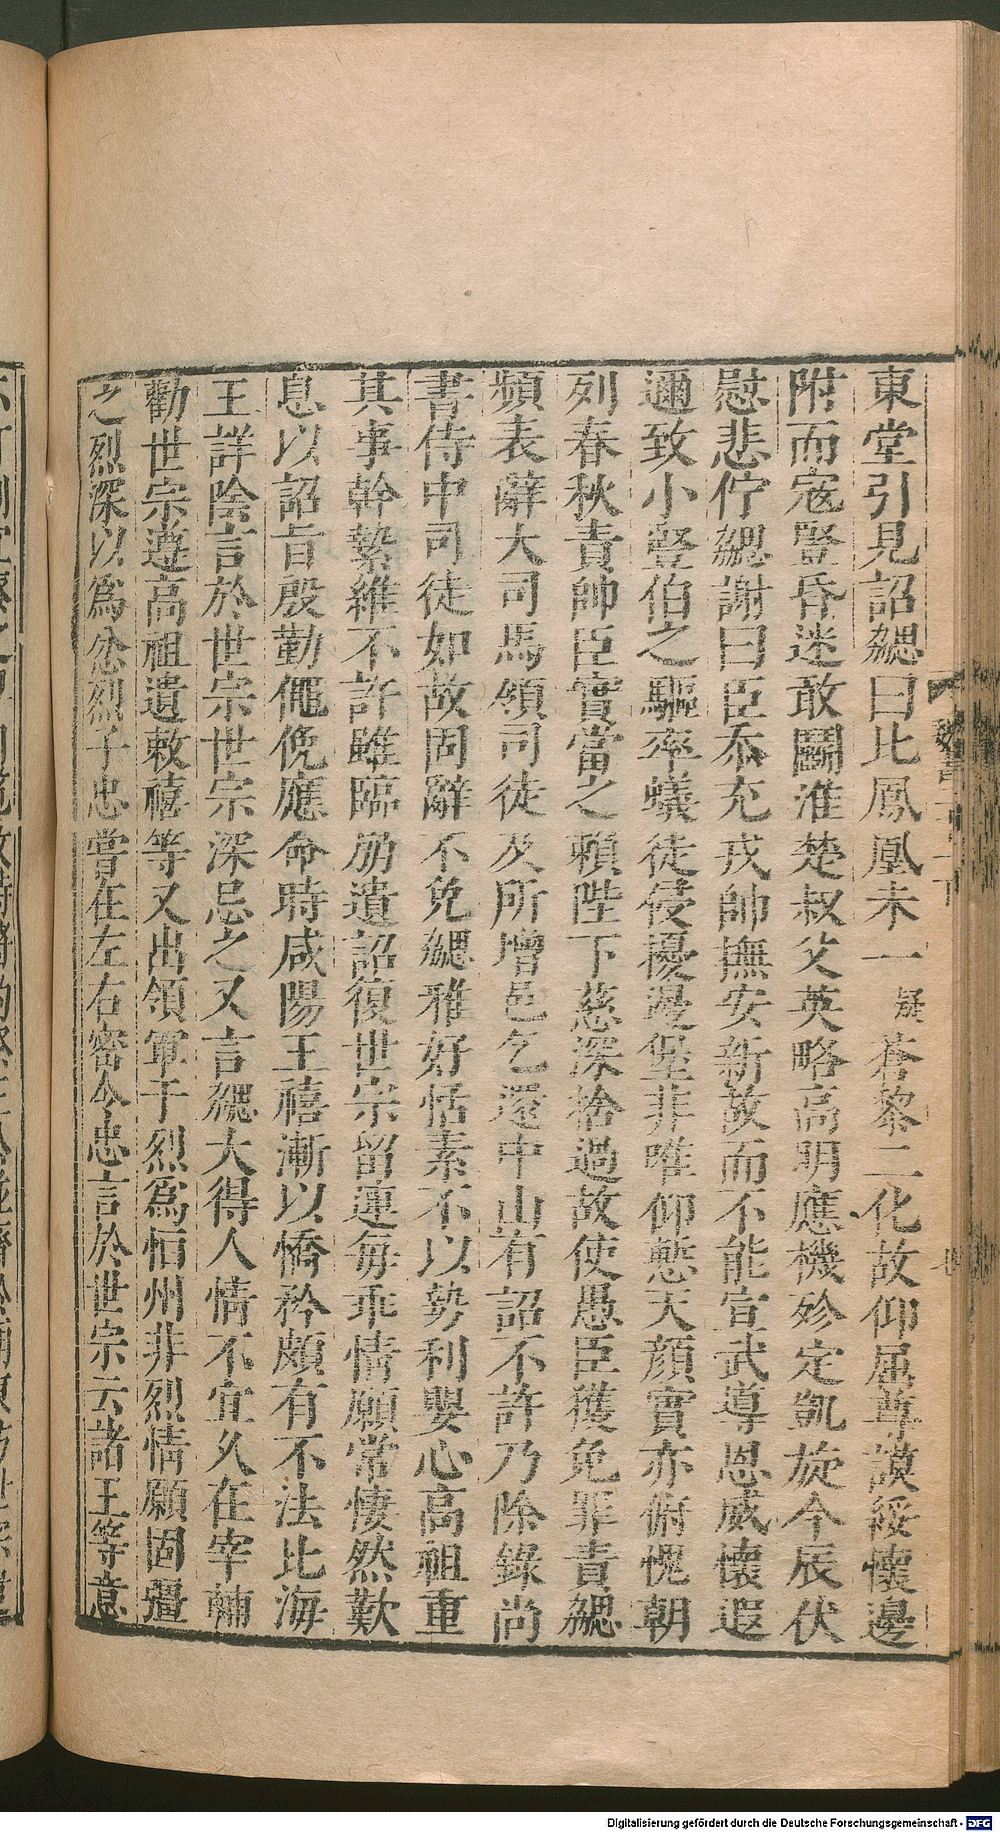 東堂引見詔勰曰比鳳凰未一疑蒼黎二化故仰屈尊謨綏懷邊
附而寇豎昏迷敢鬬淮楚叔父英略高明應機殄定凱旋今辰伏
慰悲佇勰謝曰臣忝充戎帥撫安新故而不能宣武導恩威懷遐
邇致小豎伯之驅率蟻徒侵擾邊堡非唯仰慙天顏實亦俯愧朝
列春秋責帥臣實當之賴陛下慈深捨過故使愚臣獲免罪責勰
頻表辭大司馬領司徒及所增邑乞還中山有詔不許乃除錄尚
書侍中司徒如故固辭不免勰雅好恬素不以勢利嬰心高祖重
其事幹縶維不許雖臨崩遺詔復世宗留連每乖情願常悽然歎
息以詔旨殷勤僶俛應命時咸陽王禧漸以憍矜頗有不法比海
王詳陰言於世宗世宗深忌之又言勰大得人情不宜久在宰輔
勸世宗遵高祖遺敕禧等又出領軍于烈爲恒州非烈情願固彊
之烈深以爲忿烈子忠嘗在左右密令忠言於世宗云諸王等意
魏書
Digitalisierung gefördert durch die Deutsche Forschungsgemeinschaft - DFG